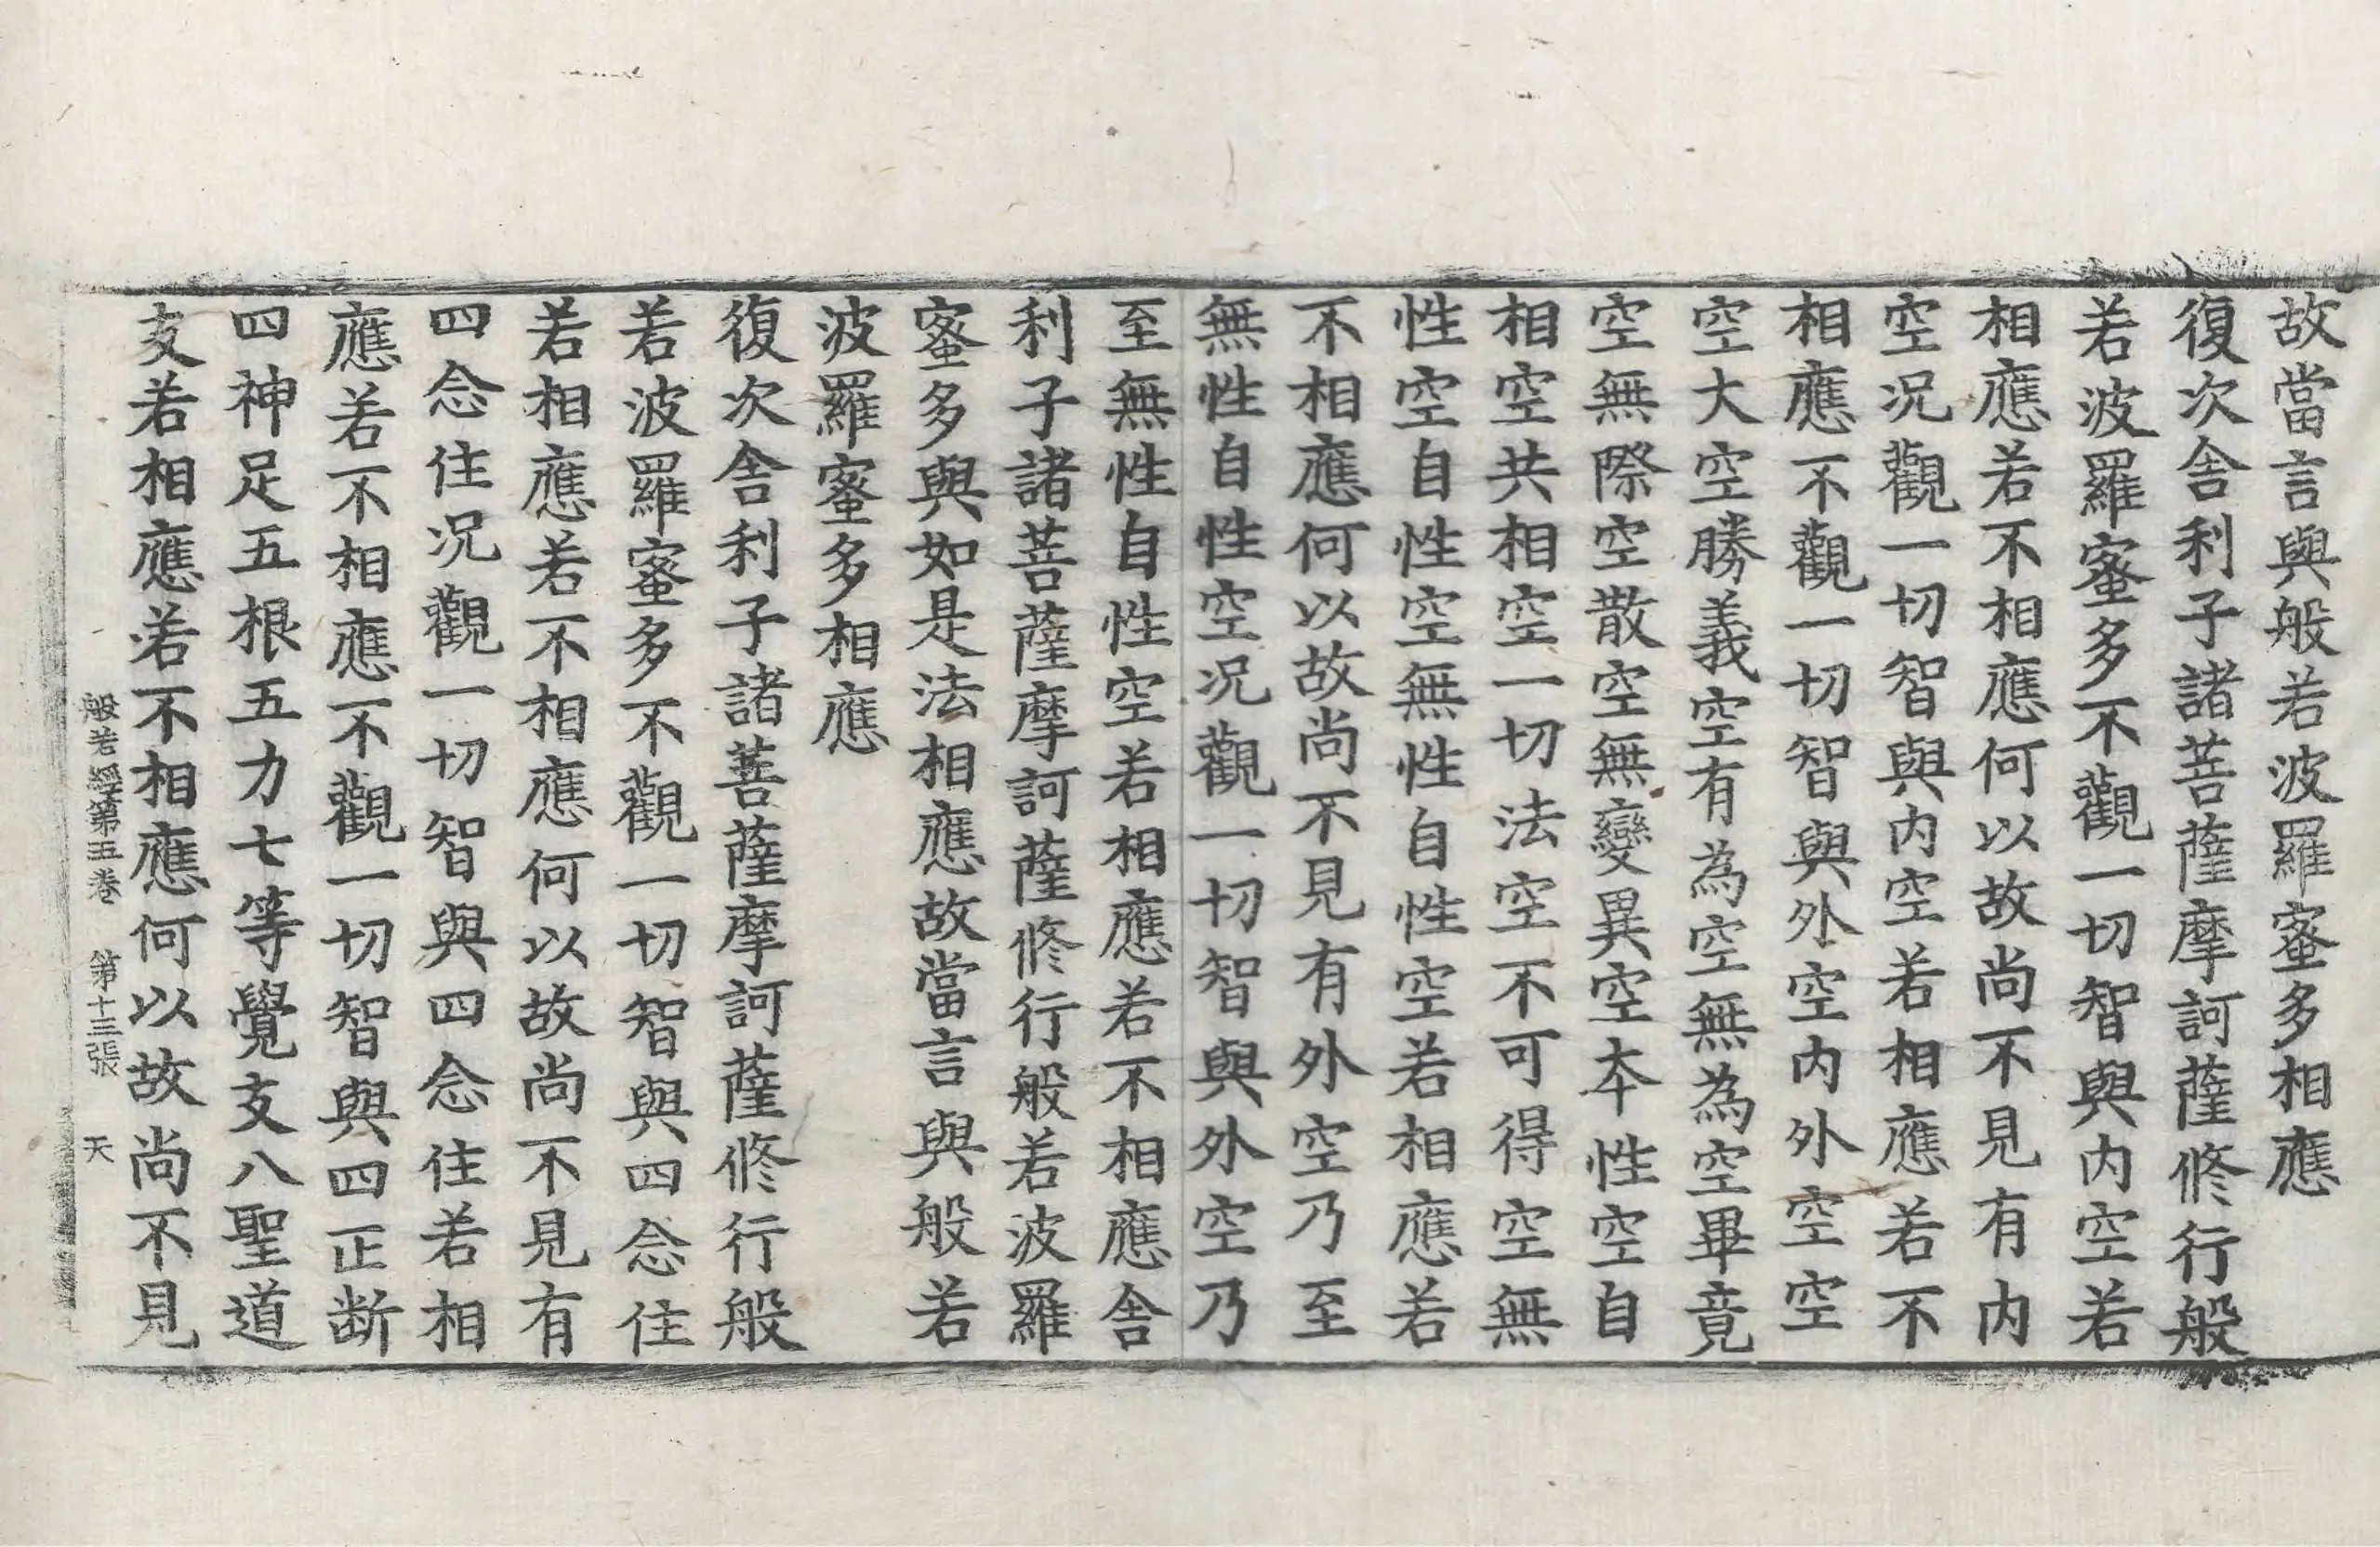 故當言與般若波羅蜜多相應
復次舍利子諸菩薩摩訶薩修行般
若波羅蜜多不觀一切智與内空若
相應若不相應何以故尚不見有内
空况觀一切智與内空若相應若不
相應不觀一切智與外空内外空空
空大空勝義空有為空無為空畢竟
空無際空散空無變異空本性空自
相空共相空一切法空不可得空無
性空自性空無性自性空若相應若
不相應何以故尚不見有外空乃至
無性自性空况觀一切智與外空乃
至無性自性空若相應若不相應舍
利子諸菩薩摩訶薩修行般若波羅
蜜多與如是法相應故當言與般若
波羅蜜多相應
復次舍利子諸菩薩摩訶薩修行般
若波羅蜜多不觀一切智與四念住
若相應若不相應何以故尚不見有
四念住况觀一切智與四念住若相
應若不相應不觀一切智與四正断
四神足五根五力七等覺支八聖道
支若相應若不相應何以故尚不見
般若經第五卷 第十三張 天